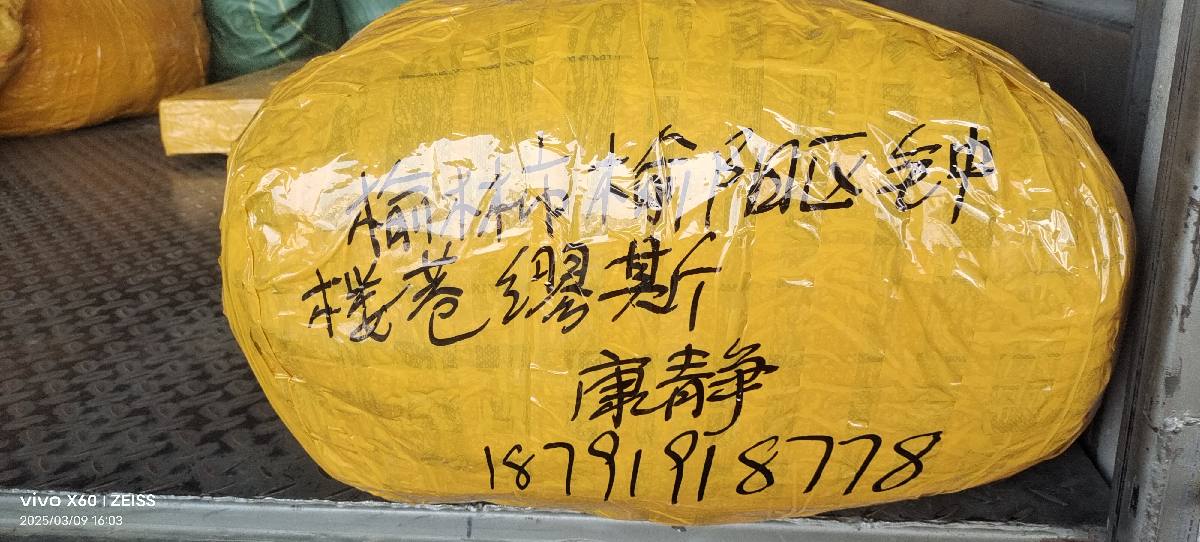 榆林市榆阳区钟
楼巷缪斯
康静
18791918778
vivo X60 | ZEISS
2025/03/09 16:03